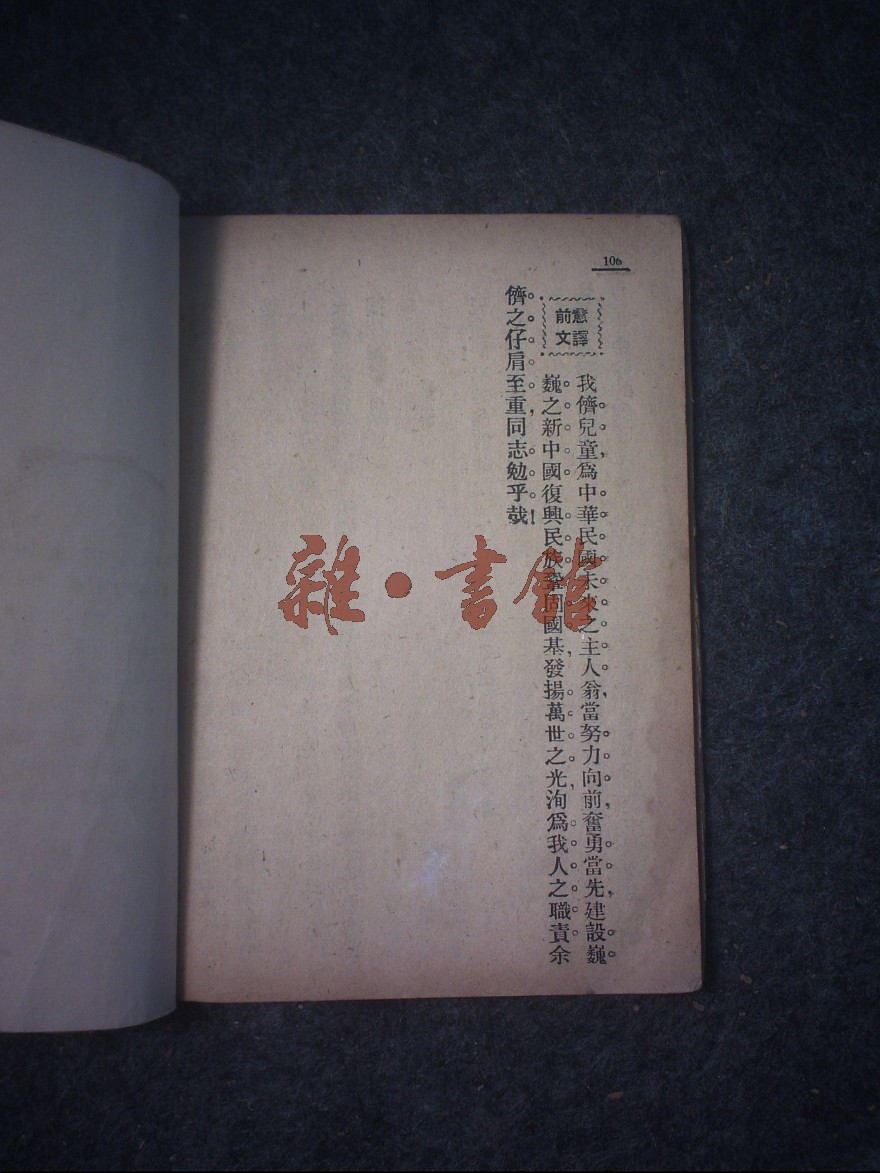 106
意譯
前文
我儕兒童,爲中華民國未來之主人翁,當努力向前,奮勇當先,建設巍
巍之新中國復興民族鞏固國基,發揚萬世之光,洵爲我人之職責余
儕之仔肩至重,同志勉乎哉!
雜·書館